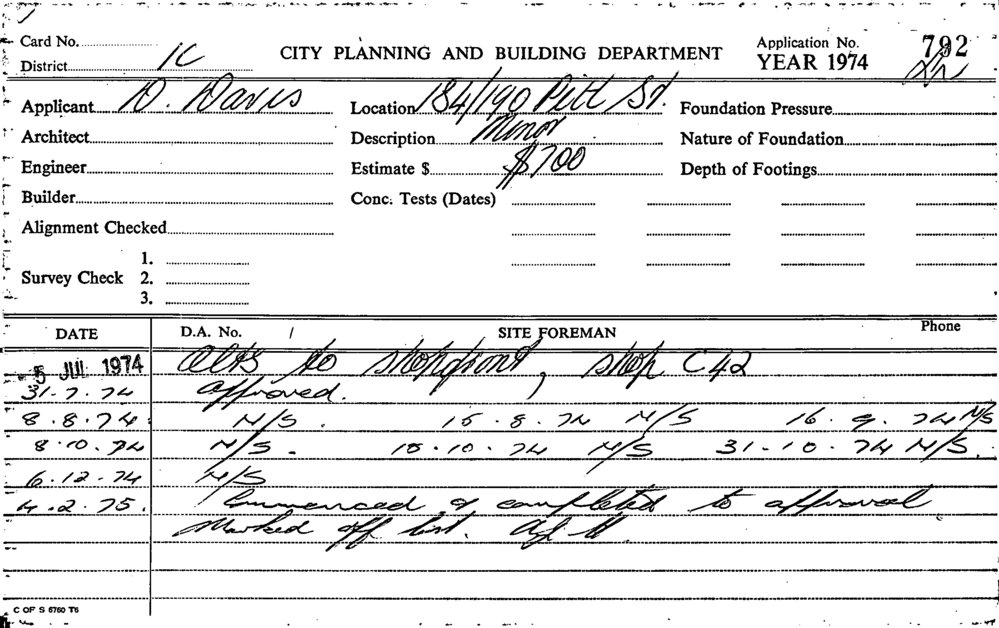 Card No.
District 1C
CITY PLANNING AND BUILDING DEPARTMENT
Application No. 792
YEAR 1974
Applicant D. Davis
Location 184/190 Pitt St.
Foundation Pressure
Architect
Description Minor
Nature of Foundation
Engineer
Estimate $ $700
Depth of Footings
Builder
Conc. Tests (Dates)
Alignment Checked
Survey Check 1.
2.
3.
DATE D.A. No. / SITE FOREMAN Phone
5 JUL 1974 Alts to shopfront, shop C42
31.7.74 approved.
8.8.74 N/S. 15.8.74 N/S 16.9.74 N/S
8.10.74 N/S. 15.10.74 N/S 31.10.74 N/S.
6.12.74 N/S
4.2.75. Commenced & completed to approval
Marked off list.
C OF S 6760 T6